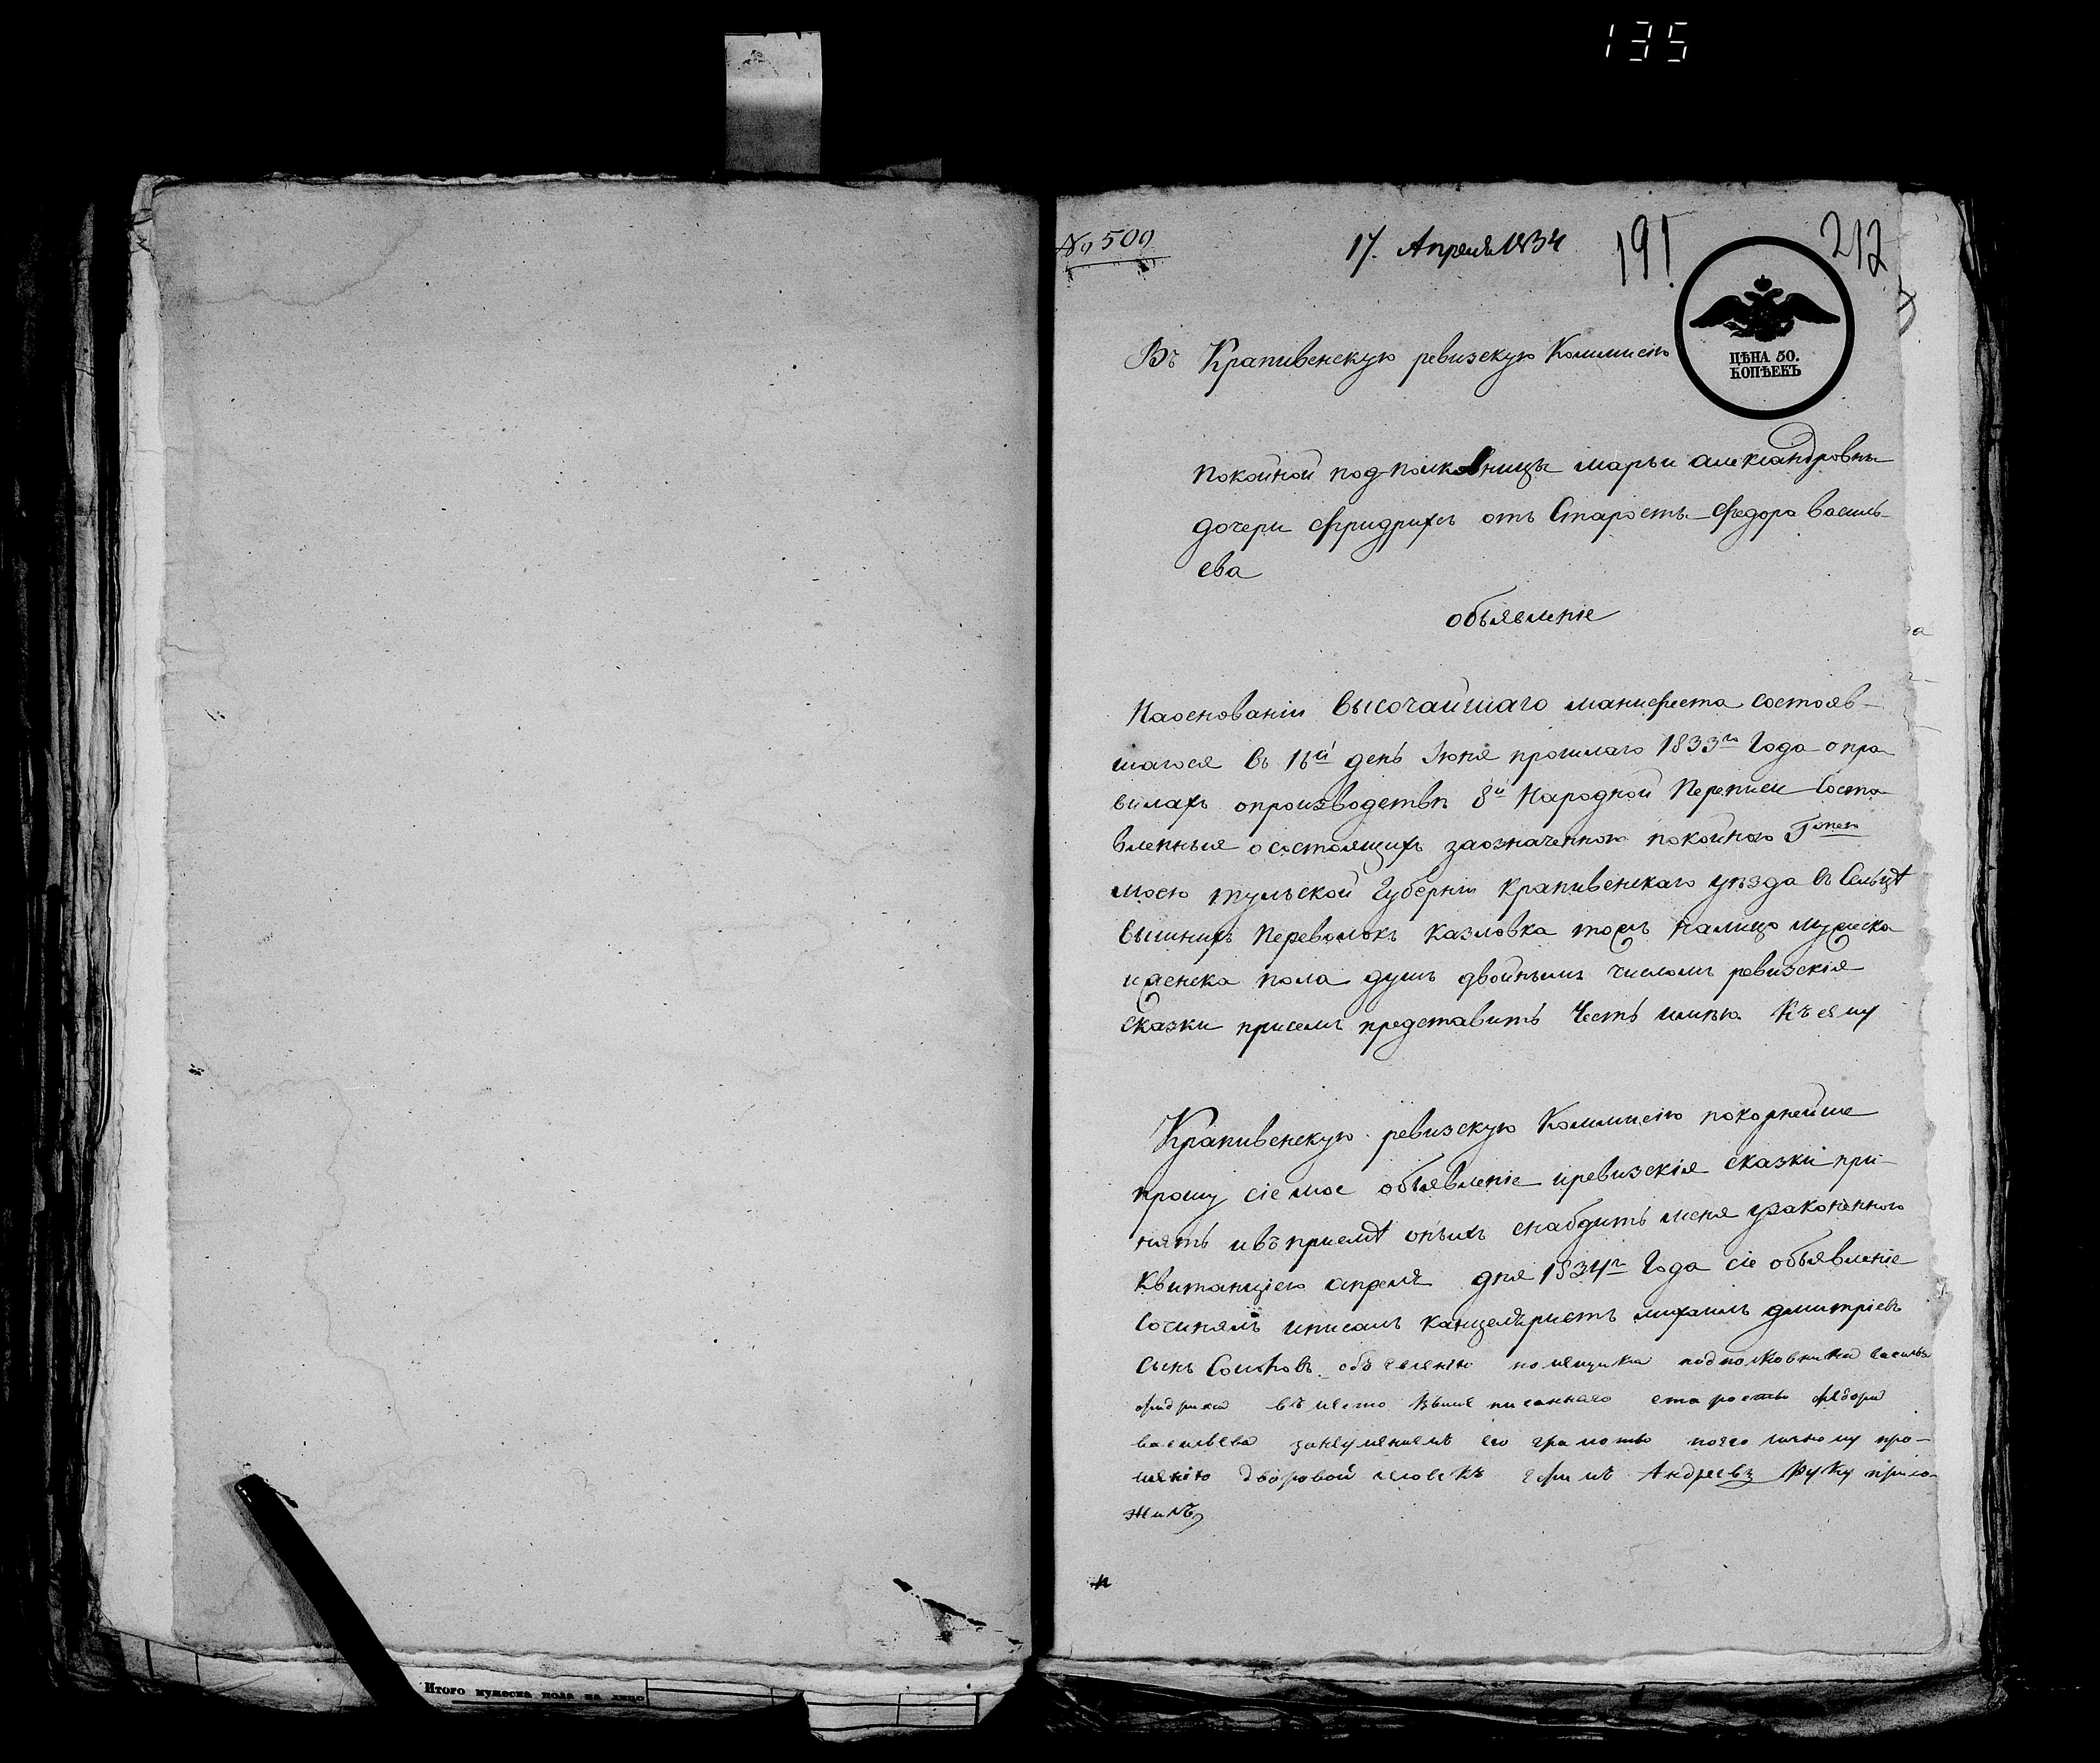 135
№ 500
17. Апреля 1834
191
212
ЦѢНА 50.
КОПѢЕКЪ
Въ Крапивенскую ревизскую Коммисію
Покойной подполковницы марьи александровны
дочери Фридрихсъ отъ Старосты Федора василь-
ева
объявленіе
Наоснованіи высочайшаго манифеста состояв-
шагося въ 16й день Іюня прошлаго 1833го Года опра-
вилахъ опроизводствѣ 8й Народной Переписи Соста-
вленныя осостоящихъ заозначенною покойною Гжею
моею тульской Губерніи крапивенскаго уѣзда въ Сельцѣ
вышнихъ Переволокъ Казловка тожъ налицо мужеска
иженска пола душъ двойнымъ числомъ ревизскія
сказки присемъ представить Честь имѣю. Къ сему
Крапивенскую ревизскую Коммисію покорнейше
прошу сіе мое объявленіе иревизскія сказки при-
нять ивъ приемѣ оныхъ снабдить меня узаконенною
Квитанціею апреля дня 1834го Года сіе объявленіе
Сочинялъ иписалъ канцеляристъ михаилъ дмитріевъ
сынъ помещика подполковника василья
фридрихса въместо выше писаннаго старосты федора
васильева занеумениемъ его грамоты поего личному про-
шенію дворовой человекъ ефимъ Андреевъ руку прило-
жилъ
Итого мужеска пола на лицо